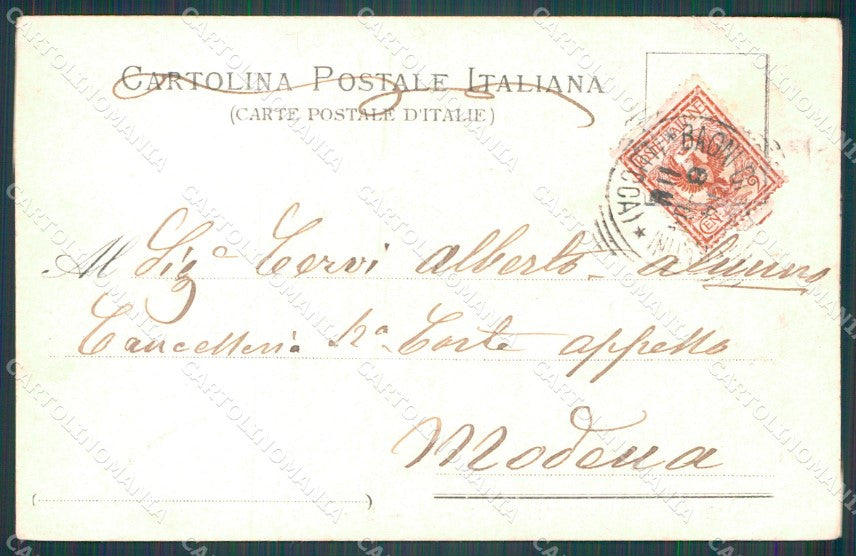 CARTOLINA POSTALE ITALIANA
(CARTE POSTALE D'ITALIE)
POSTE ITALIANE
BAGNI
(LUCCA)
Al Sigª Cervi Alberto - alunno
Cancelleria Rª Corte appello
Modena
CARTOLINOMANIA